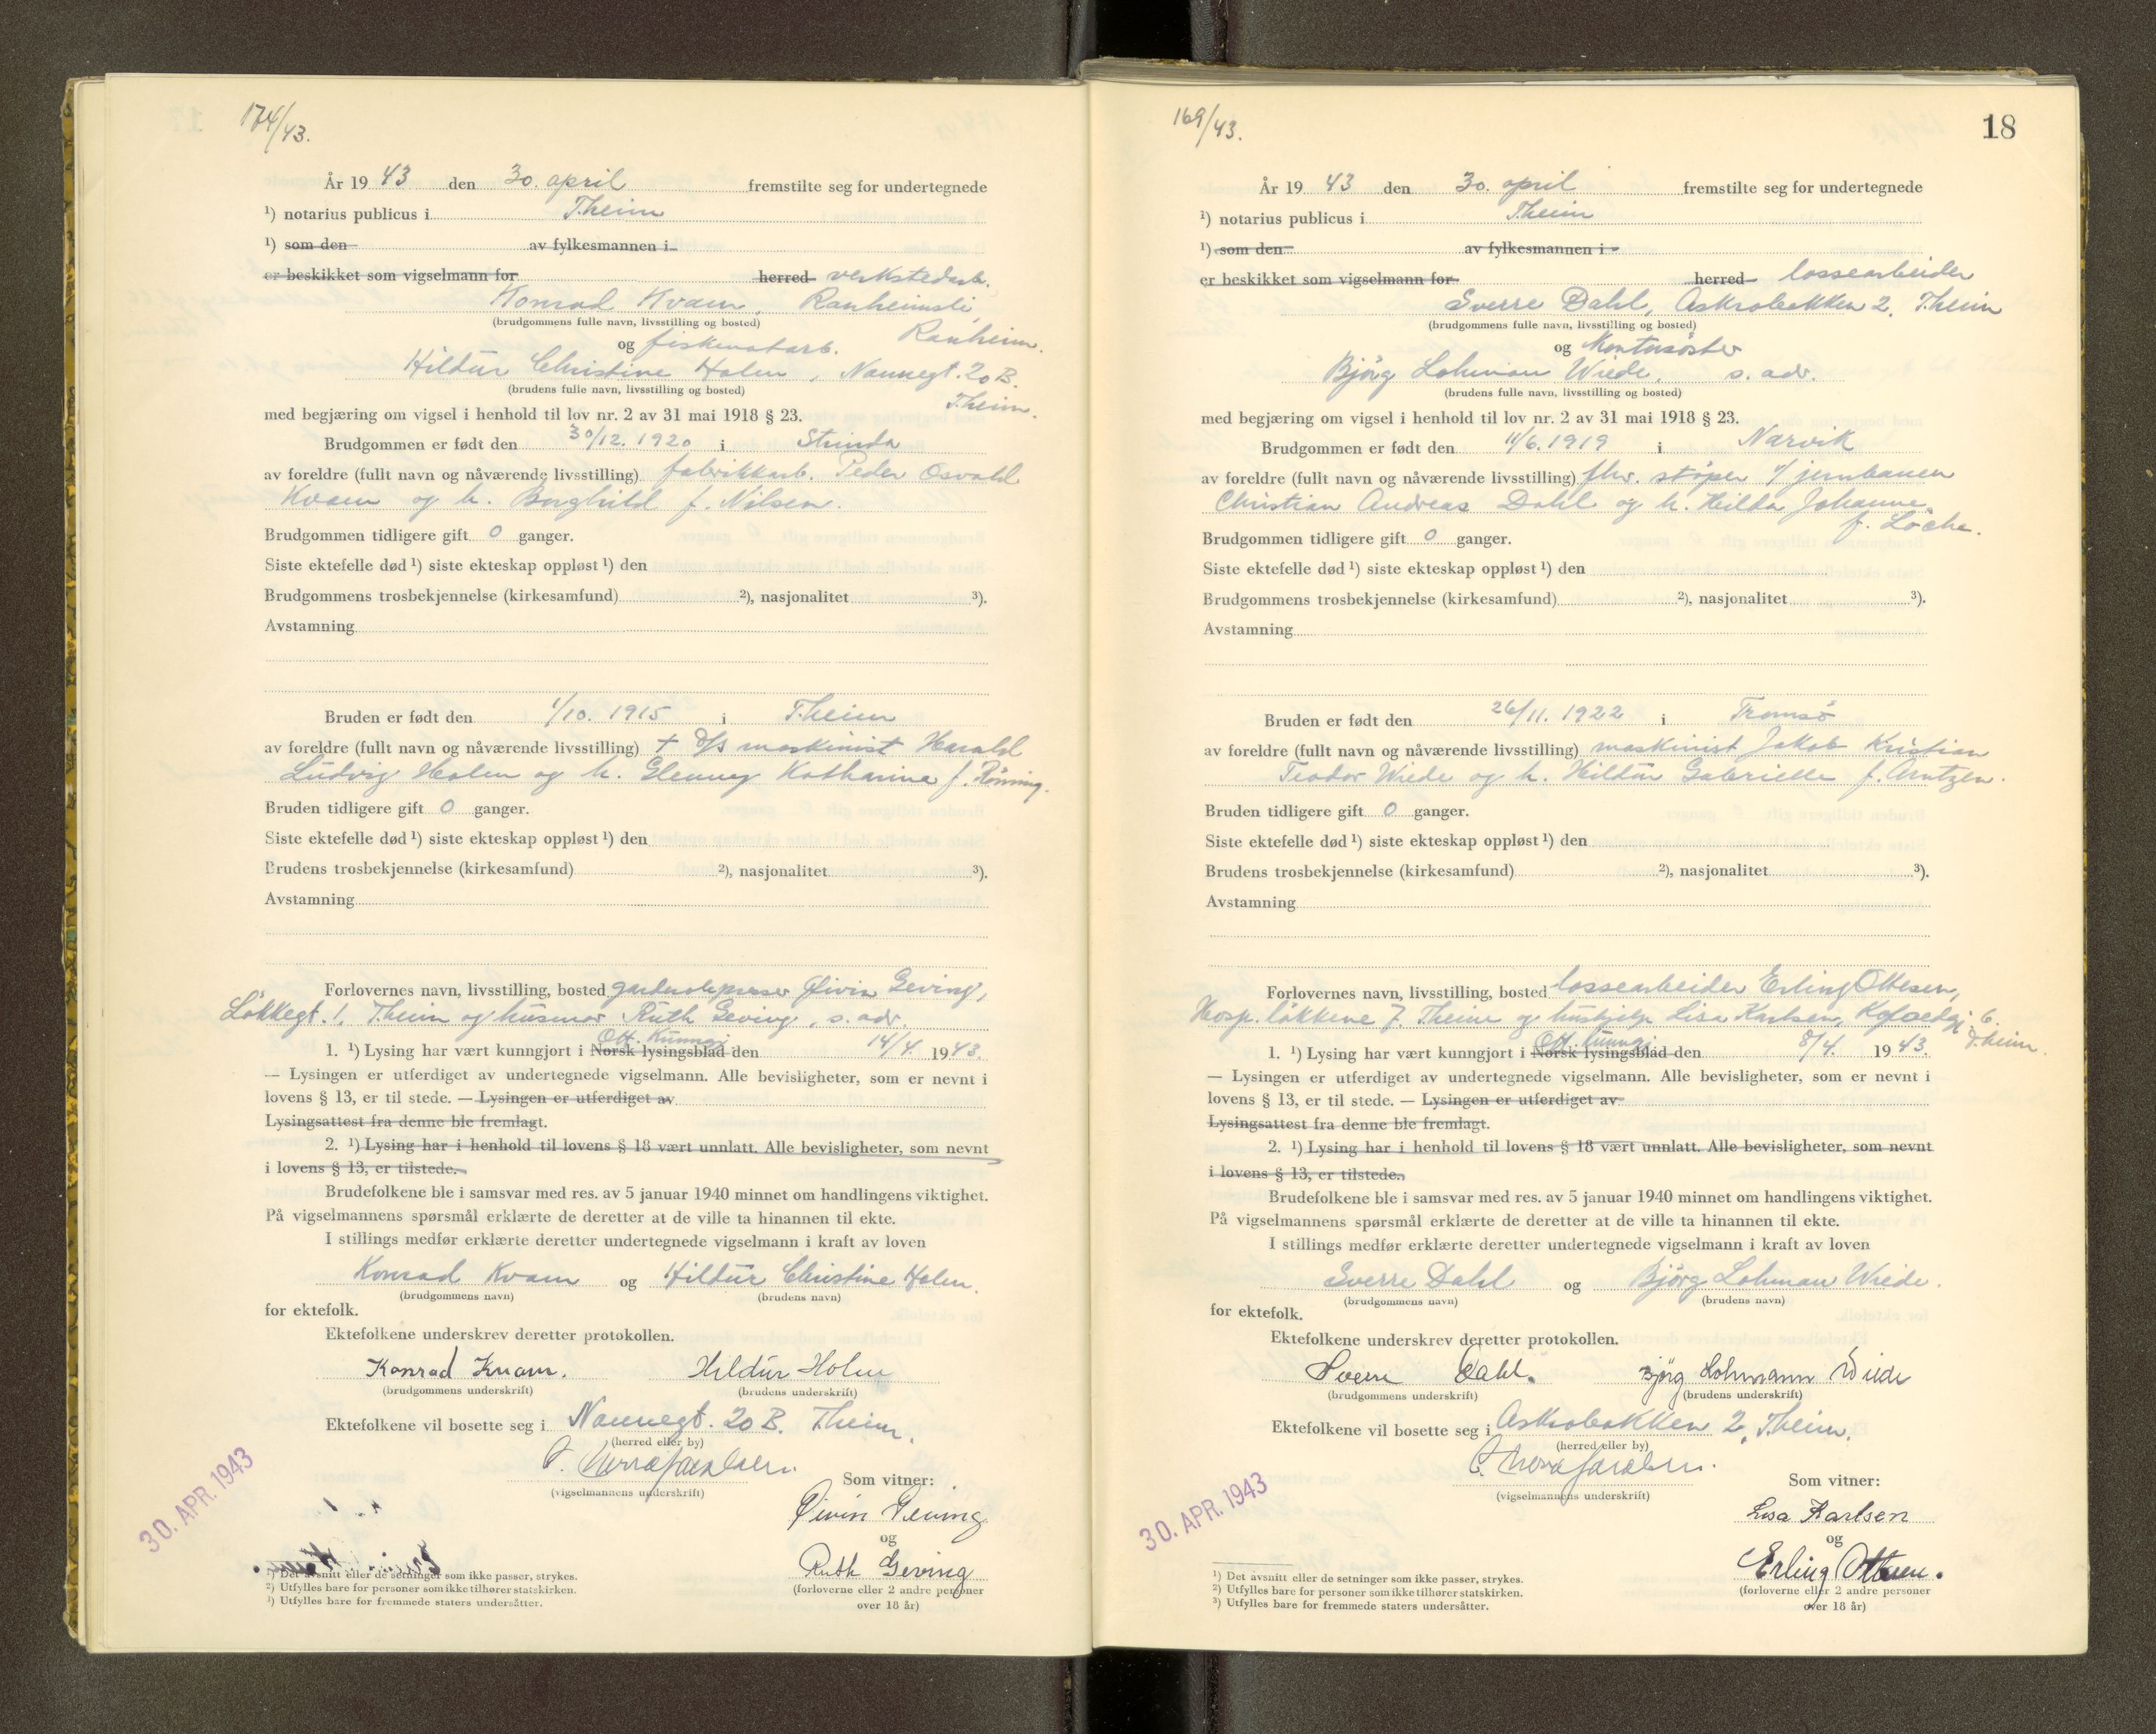 174/43.
År 19 43 den 30. april fremstilte seg for undertegnede
¹) notarius publicus i T.heim
¹) som den av fylkesmannen i
er beskikket som vigselmann for herred verkstedarb.
Konrad Kvam, Ranheimsli,
(brudgommens fulle navn, livsstilling og bosted)
Ranheim.
og
Hildur Christine Holm, Nannegt. 20 B.
(brudens fulle navn, livsstilling og bosted)
T.heim.
med begjæring om vigsel i henhold til lov nr. 2 av 31 mai 1918 § 23.
Brudgommen er født den 30/12. 1920 i Strinda
av foreldre (fullt navn og nåværende livsstilling) fabrikkarb. Peder Osvald
Kvam og h. Borghild f. Nilsen.
Brudgommen tidligere gift 0 ganger.
Siste ektefelle død ¹) siste ekteskap oppløst ¹) den
Brudgommens trosbekjennelse (kirkesamfund) ²), nasjonalitet ³).
Avstamning
Bruden er født den 1/10. 1915 i T.heim
av foreldre (fullt navn og nåværende livsstilling) + d/s maskinist Harald
Ludvig Holm og h. Glenny Katharina f. Röning.
Bruden tidligere gift 0 ganger.
Siste ektefelle død ¹) siste ekteskap oppløst ¹) den
Brudens trosbekjennelse (kirkesamfund) ²), nasjonalitet ³).
Avstamning
Forlovernes navn, livsstilling, bosted Øivin Geving,
Løkkegt. 1, T.heim og husmor Ruth Geving, s. adr.
Off. Kunngj.
1. ¹) Lysing har vært kunngjort i Norsk lysingsblad den 14/4. 1943.
— Lysingen er utferdiget av undertegnede vigselmann. Alle bevisligheter, som er nevnt i
lovens § 13, er til stede. — Lysingen er utferdiget av
Lysingsattest fra denne ble fremlagt.
2. ¹) Lysing har i henhold til lovens § 18 vært unnlatt. Alle bevisligheter, som nevnt
i lovens § 13, er tilstede.
Brudefolkene ble i samsvar med res. av 5 januar 1940 minnet om handlingens viktighet.
På vigselmannens spørsmål erklærte de deretter at de ville ta hinannen til ekte.
I stillings medfør erklærte deretter undertegnede vigselmann i kraft av loven
Konrad Kvam og Hildur Christine Holm.
(brudgommens navn) (brudens navn)
for ektefolk.
Ektefolkene underskrev deretter protokollen.
Konrad Kvam. Hildur Holm
(brudgommens underskrift) (brudens underskrift)
Ektefolkene vil bosette seg i Nannegt. 20 B. T.heim.
(herred eller by)
(vigselmannens underskrift)
Som vitner:
Øivin Geving
og
Ruth Geving
(forloverne eller 2 andre personer
over 18 år)
30. APR. 1943
¹) Det avsnitt eller de setninger som ikke passer, strykes.
²) Utfylles bare for personer som ikke tilhører statskirken.
³) Utfylles bare for fremmede staters undersåtter.
169/43.
18
År 19 43 den 30. april fremstilte seg for undertegnede
¹) notarius publicus i T.heim
¹) som den av fylkesmannen i
er beskikket som vigselmann for herred lossearbeider
Sverre Dahl, Askrobakken 2, T.heim
(brudgommens fulle navn, livsstilling og bosted)
og Kontorsøster
Bjørg Lohman Wiede, s. adr.
(brudens fulle navn, livsstilling og bosted)
med begjæring om vigsel i henhold til lov nr. 2 av 31 mai 1918 § 23.
Brudgommen er født den 11/6. 1919 i Narvik
av foreldre (fullt navn og nåværende livsstilling) fhv. støper v/ jernbanen
Christian Andreas Dahl og h. Hilda Johanne
f. Loche.
Brudgommen tidligere gift 0 ganger.
Siste ektefelle død ¹) siste ekteskap oppløst ¹) den
Brudgommens trosbekjennelse (kirkesamfund) ²), nasjonalitet ³).
Avstamning
Bruden er født den 26/11. 1922 i Tromsø
av foreldre (fullt navn og nåværende livsstilling) maskinist Jakob Kristian
Teodor Wiede og h. Hildur Gabrielle f. Arntzen.
Bruden tidligere gift 0 ganger.
Siste ektefelle død ¹) siste ekteskap oppløst ¹) den
Brudens trosbekjennelse (kirkesamfund) ²), nasjonalitet ³).
Avstamning
Forlovernes navn, livsstilling, bosted lossearbeider Erling Ottesen,
Hosp. løkkene 7, T.heim og hushjelp Lisa Karlsen, 6.
T.heim.
Off. Kunngj.
1. ¹) Lysing har vært kunngjort i Norsk lysingsblad den 8/4. 1943.
— Lysingen er utferdiget av undertegnede vigselmann. Alle bevisligheter, som er nevnt i
lovens § 13, er til stede. — Lysingen er utferdiget av
Lysingsattest fra denne ble fremlagt.
2. ¹) Lysing har i henhold til lovens § 18 vært unnlatt. Alle bevisligheter, som nevnt
i lovens § 13, er tilstede.
Brudefolkene ble i samsvar med res. av 5 januar 1940 minnet om handlingens viktighet.
På vigselmannens spørsmål erklærte de deretter at de ville ta hinannen til ekte.
I stillings medfør erklærte deretter undertegnede vigselmann i kraft av loven
Sverre Dahl og Bjørg Lohman Wiede.
(brudgommens navn) (brudens navn)
for ektefolk.
Ektefolkene underskrev deretter protokollen.
Sverre Dahl. Bjørg Lohmann Wiede
(brudgommens underskrift) (brudens underskrift)
Ektefolkene vil bosette seg i Askrobakken 2, T.heim.
(herred eller by)
(vigselmannens underskrift)
Som vitner:
Lisa Karlsen
og
Erling Ottesen.
(forloverne eller 2 andre personer
over 18 år)
30. APR. 1943
¹) Det avsnitt eller de setninger som ikke passer, strykes.
²) Utfylles bare for personer som ikke tilhører statskirken.
³) Utfylles bare for fremmede staters undersåtter.